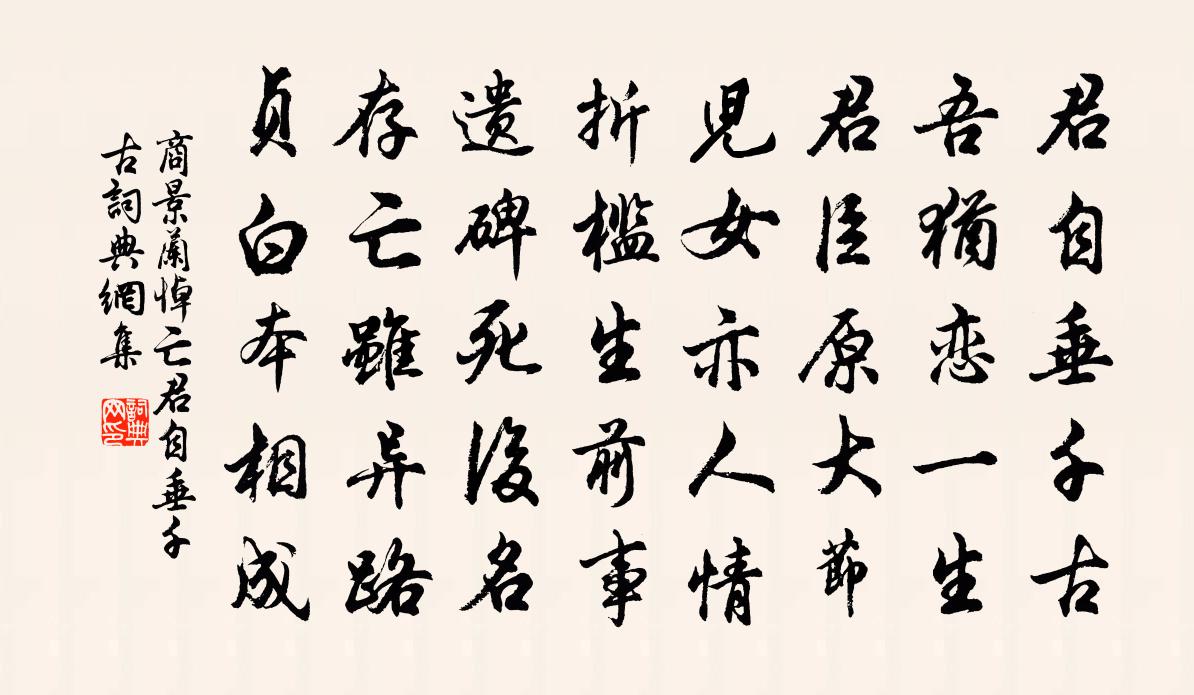 君自垂千古
吾猶恋一生
君臣原大節
兒女亦人情
折檻生前事
遺碑死後名
存亡雖异路
貞白本相成
商景蘭悼亡君自垂千
古詞典網集
詞典网印